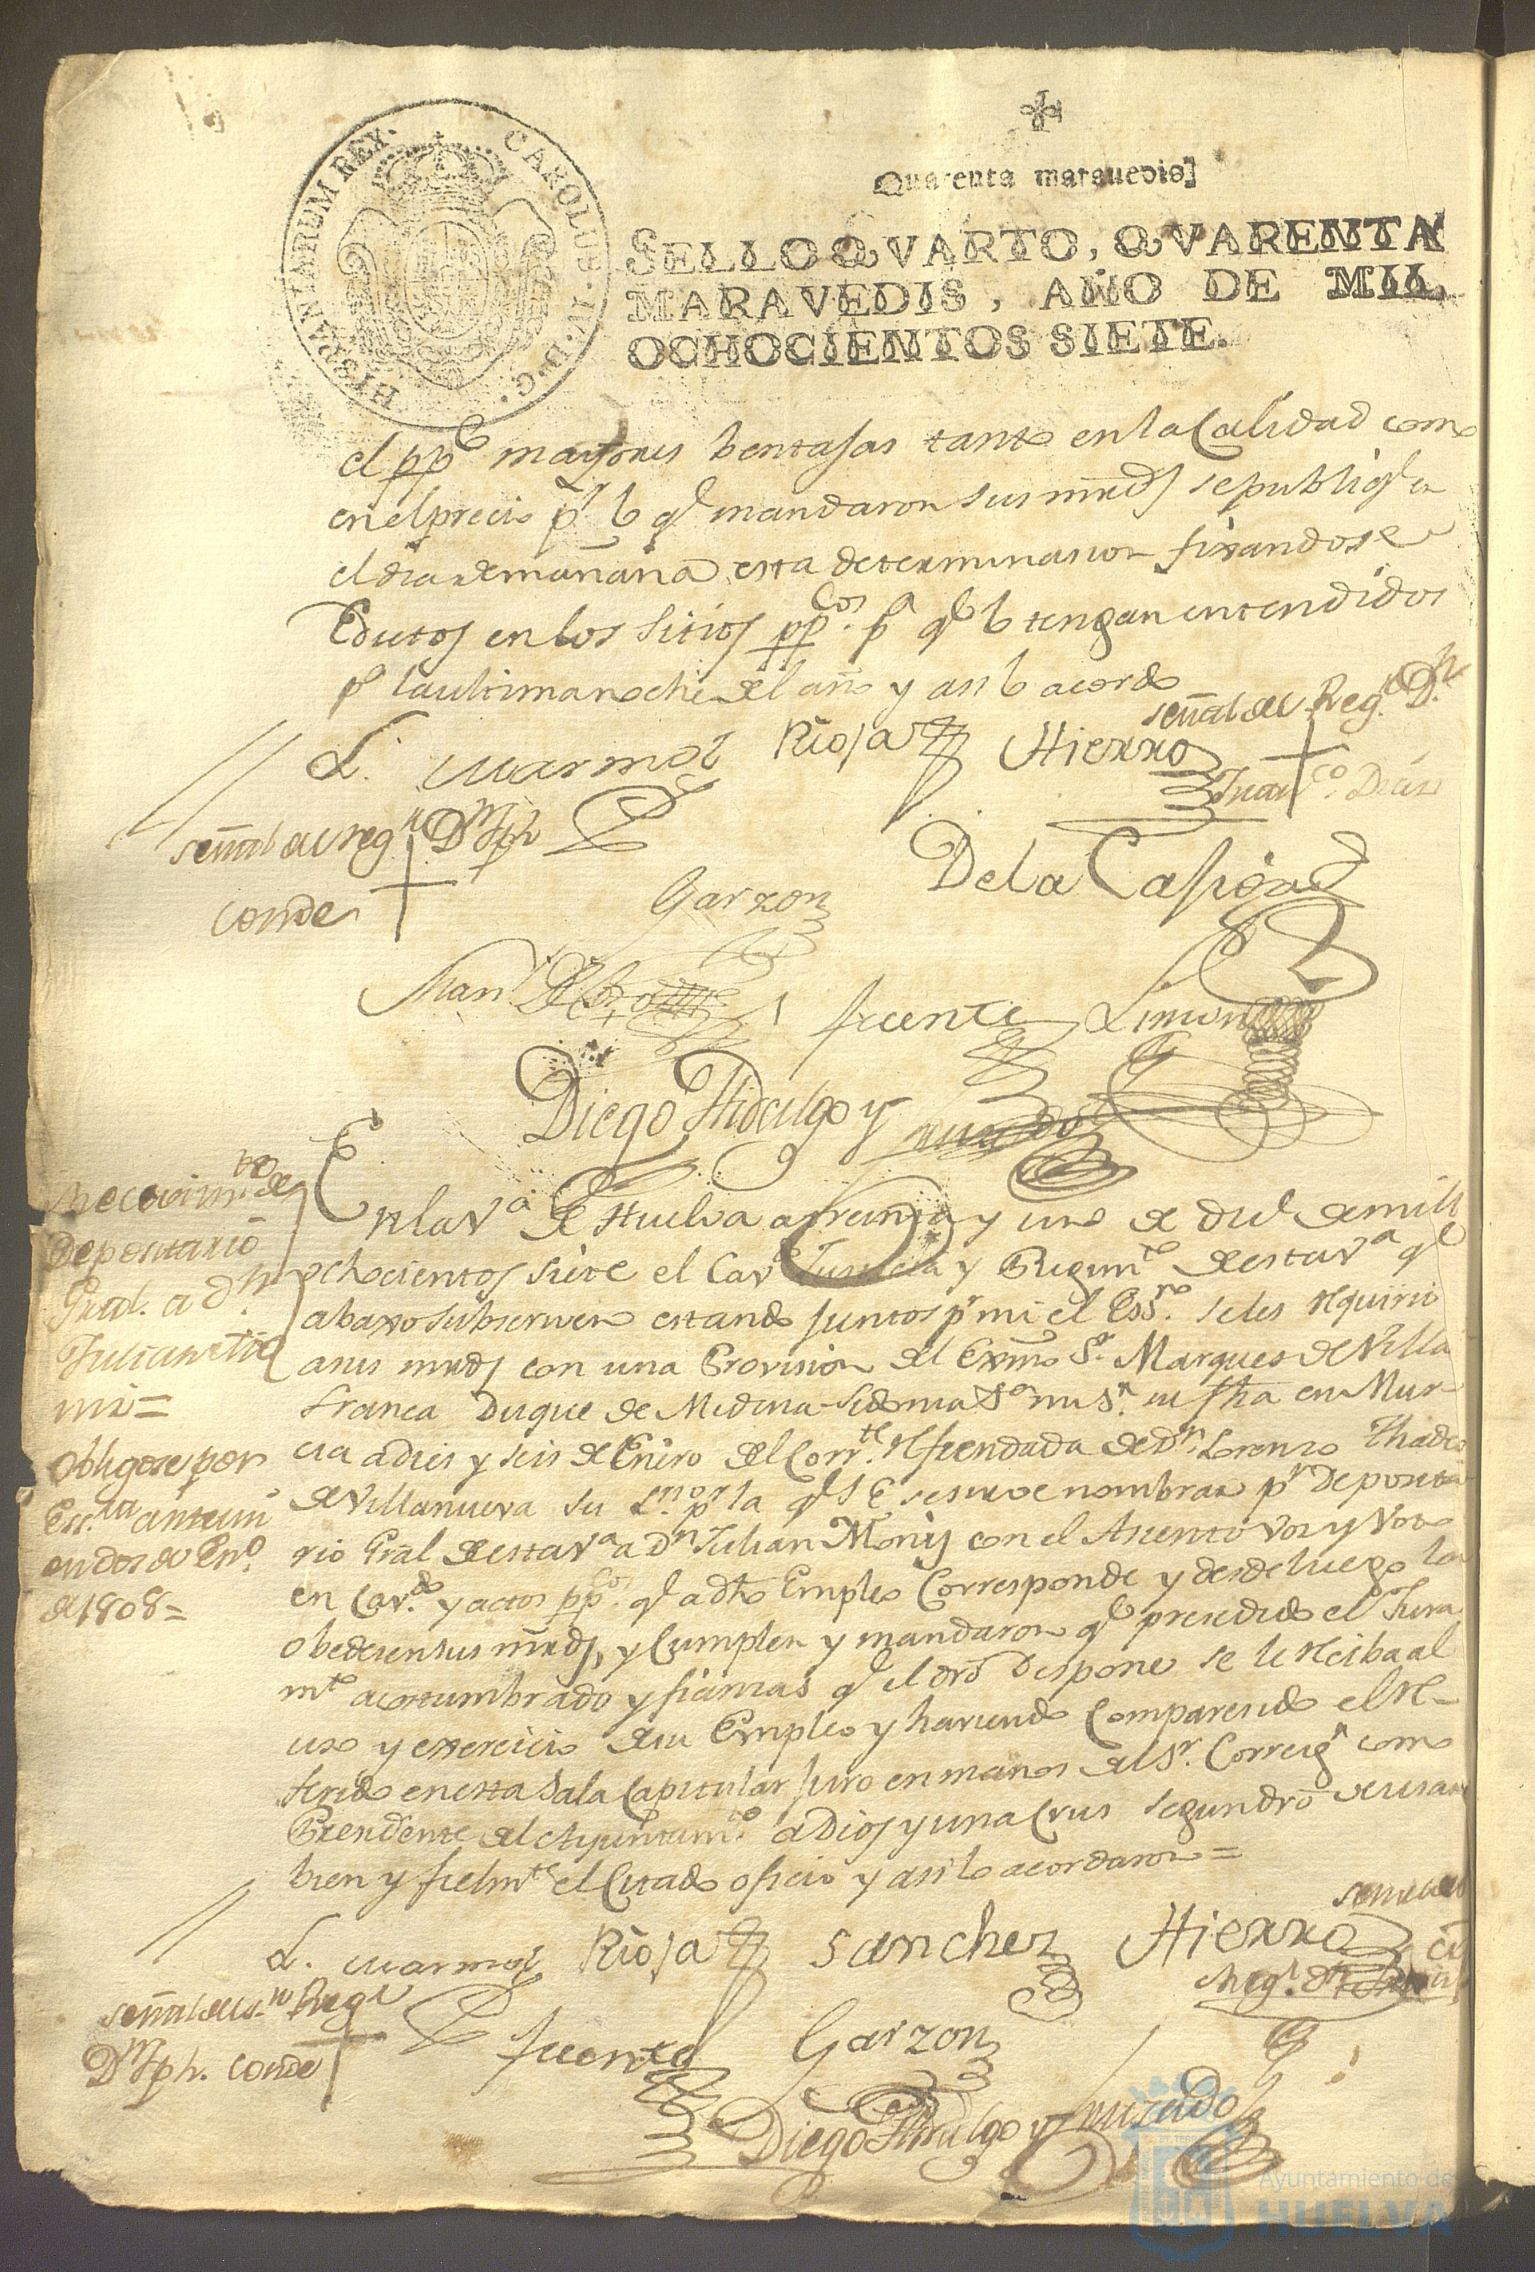 HISPANIARUM REX.
CAROLUS.IV.D.G.
Quarenta marauedis.
SELLO QVARTO, QVARENTA
MARAVEDIS, AÑO DE MIL
OCHOCIENTOS SIETE.
el ppco mayores bentajas tanto en la Calidad como
en el precio pr lo qe mandaron sus mrds se publiqe en
el dia de mañana esta determinasion fixandose
Edictos en los Sitios ppcos. pa qe lo tengan entendidos
pa la ultima noche del año y asi lo acordo
L. Marmol
Rioja
Hierro
señal del Regr Dn
Franco. Dias
señal del regr Dn Jph
conde
Garzon
De la Casa
Manl
fuente
Limon
Diego Hidalgo y
Recevimto de
Depositario
Gral. a Dn
Julian Mo
ñis=
Obligose por
Essra ante mi
en dos de Eno
de 1808=
En la Va de Huelva a treinta y uno de Dice de mill
ochocientos siete el Cavo Justicia y Regimto de esta Va qe
abaxo subscriven estando juntos pr mi el Essno se les requirio
a sus mrds con una Provision del Exmo Sr. Marques de Villa
franca Duque de Medina Sidonia Sor mi Sr. su fha en Mur-
cia a dies y seis de Enero del Corrte refrendada de Dn. Lorenzo Thadeo
de Villanueva su Srio pr la qe S E se sirve nombrar pr Deposita
rio Gral de esta Va a Dn Julian Moñis con el Asiento Vos y Voto
en Cavdo. y actos ppcos. qe a dho Empleo Corresponde y desde luego la
obedesen sus mrds, y Cumplen y mandaron qe presedido el Jura
mto acostumbrado y fianzas qe el dro dispone se le resiba al
uso y exersicio de su Empleo y haviendo Comparesido el re-
ferido en esta Sala Capitular juro en manos del Sr. Corregr como
Presidente del Ayuntamto a Dios y una Crus segun dro de usar
bien y fielmte el Citado oficio y asi lo acordaron=
L. Marmol
Rioja
Sanchez
Hierro
señal del
Regr. Dn
señal del Sr Regr
Dn Jph. Conde
fuente
Garzon
Diego Hidalgo y
Ayuntamiento de
HUELVA